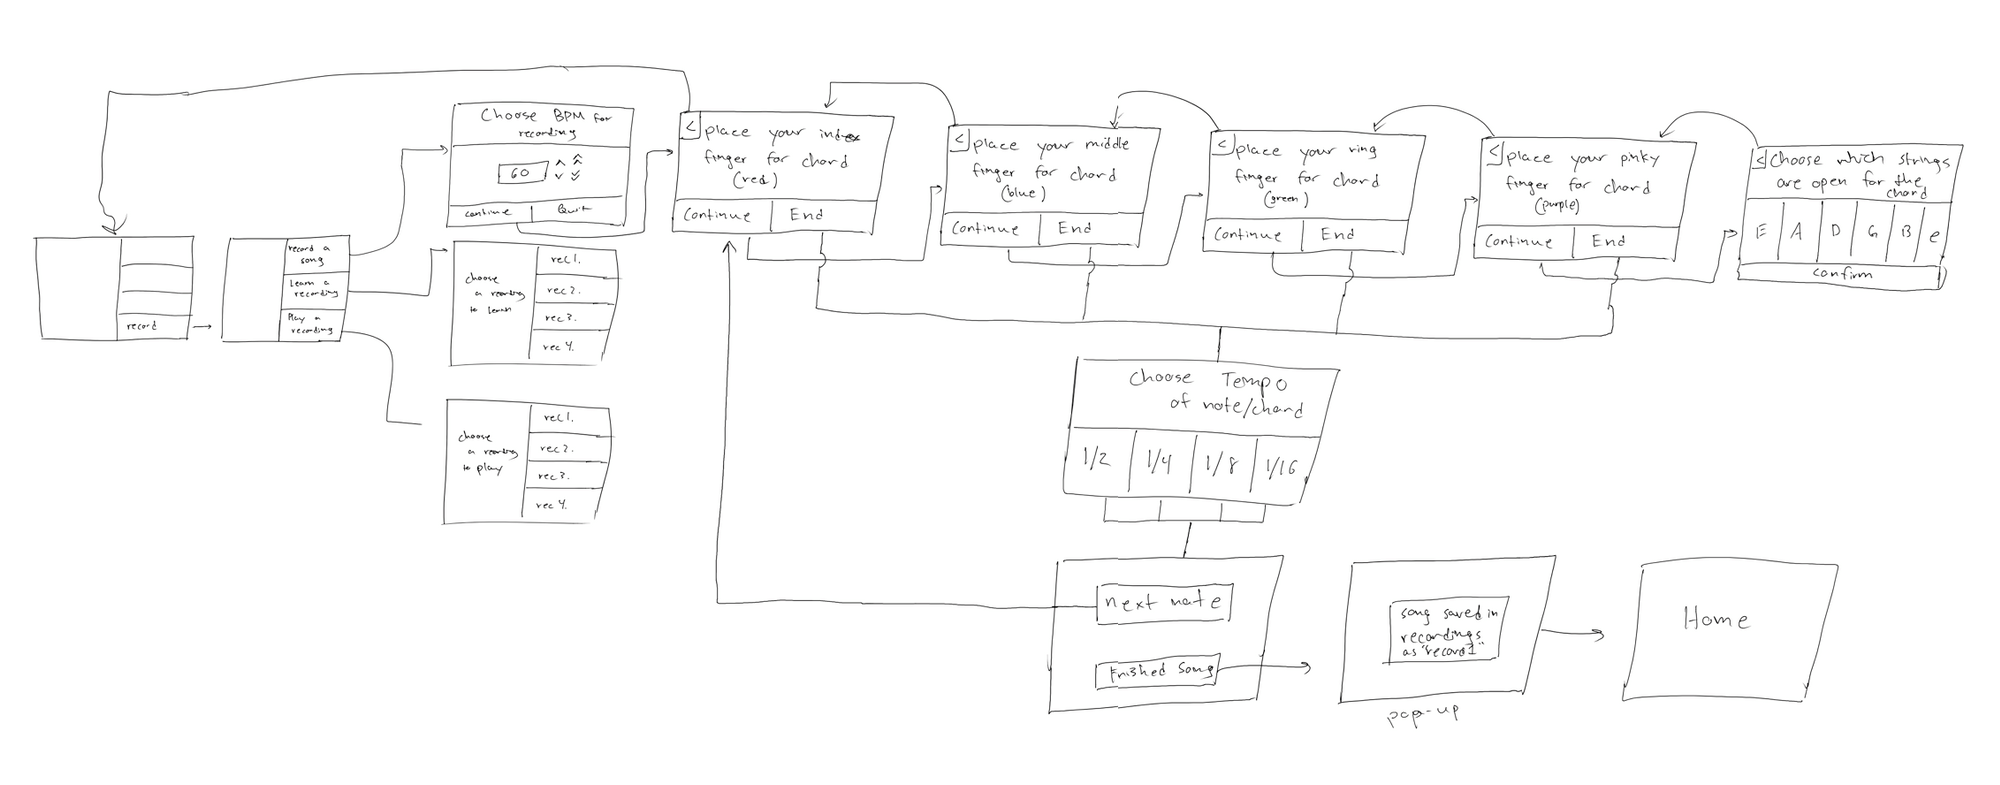 record
record a
song
Learn a
recording
Play a
recording
Choose BPM for
recording
60
continue
Quit
choose
a recording
to learn
rec1.
rec2.
rec3.
rec4.
choose
a recording
to play
rec1.
rec2.
rec3.
rec4.
< place your index
finger for chord
(red)
Continue
End
< place your middle
finger for chord
(blue)
Continue
End
< place your ring
finger for chord
(green)
Continue
End
< place your pinky
finger for chord
(purple)
Continue
End
< Choose which strings
are open for the
chord
E A D G B e
Confirm
Choose Tempo
of note/chord
1/2 1/4 1/8 1/16
next note
Finished Song
song saved in
recordings
as "record1"
pop-up
Home